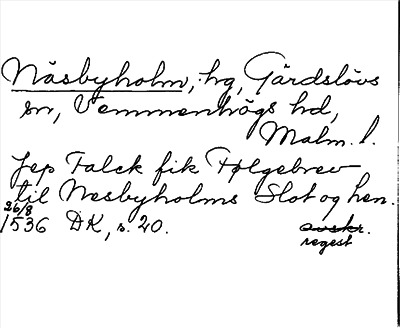 Näsbyholm, hg, Gärdslövs
sn, Vemmenhögs hd,
Malm. l.
Jep Falck fik Følgebrev
til Nesbyholms Slot og hen.
26/8
1536 DK, s. 20. avskr.
regest